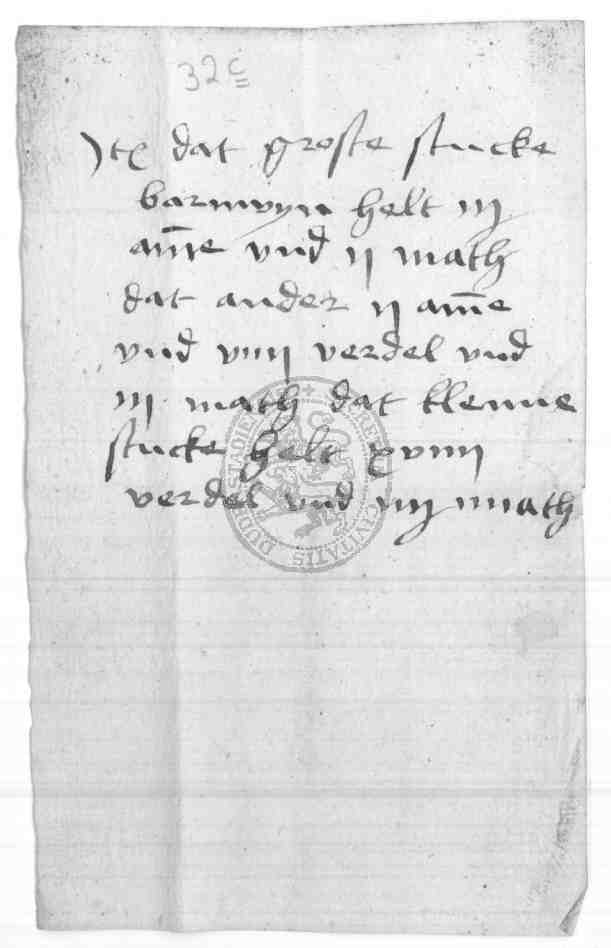 32c
Itē dat groste stucke
barnwyn helt iij
am̄e vnd ij math
dat ander ij am̄e
vnd viij verdel vnd
iij math dat klenne
stucke helt xviij
verdel vnd iiij math